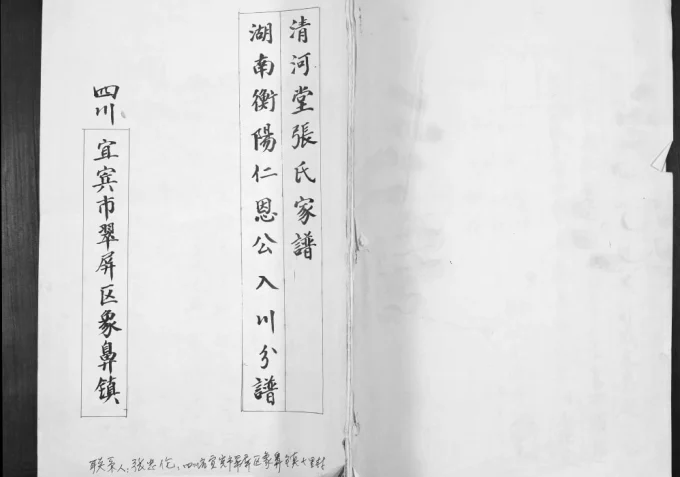 清河堂張氏家譜
湖南衡陽仁恩公入川分譜
四川
宜宾市翠屏区象鼻镇
联系人:张忠伦、四川省宜宾市翠屏区象鼻镇七里村